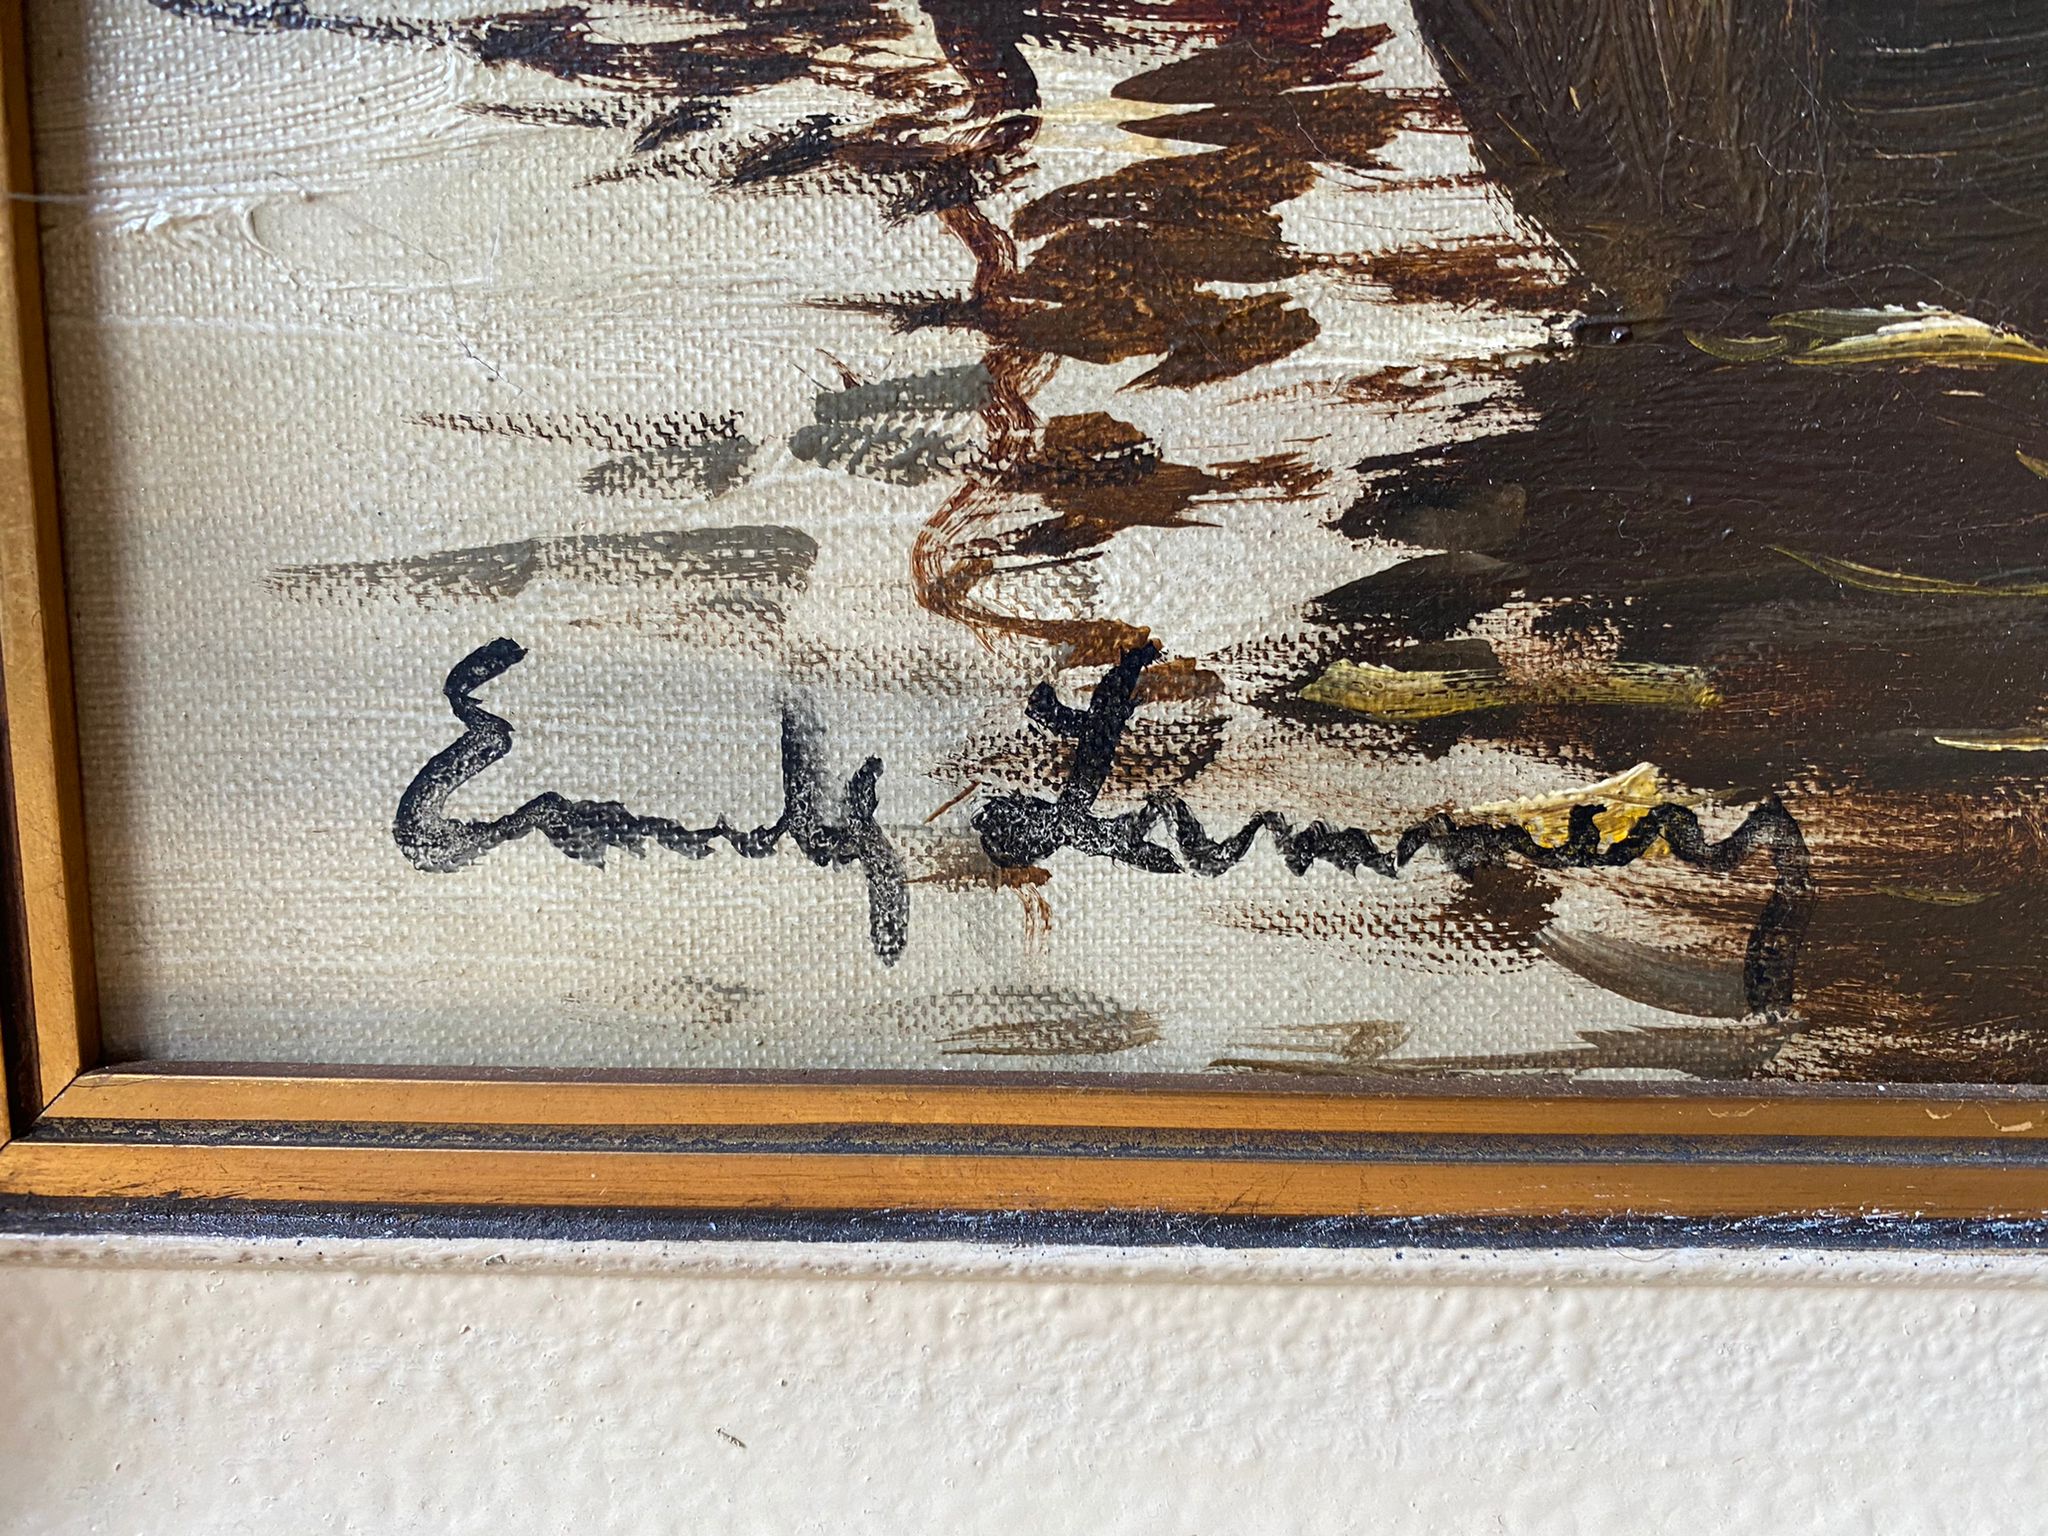 Emily Lammey